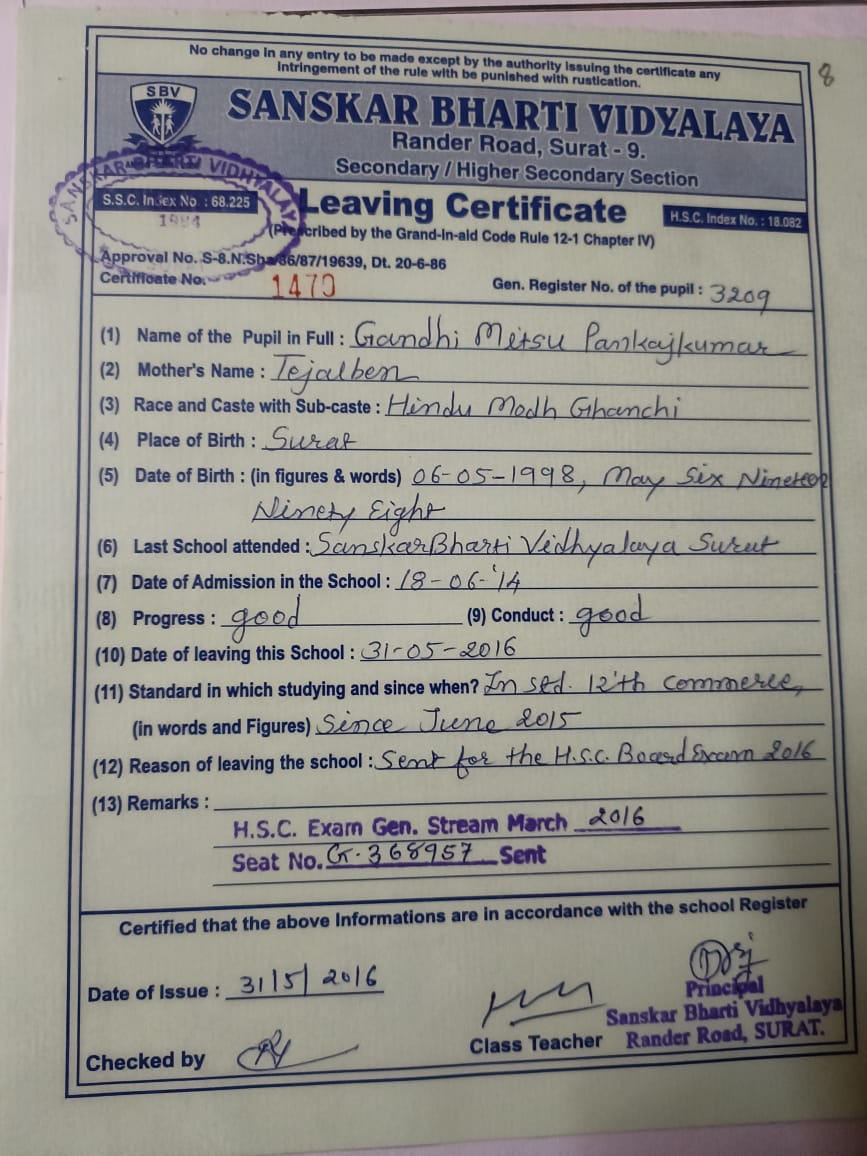 8
No change in any entry to be made except by the authority issuing the certificate any
intringement of the rule with be punished with rustication.
SBV
SANSKAR BHARTI VIDYALAYA
Rander Road, Surat - 9.
Secondary / Higher Secondary Section
SANSKAR BHARTI VIDHYALAYA
S.S.C. Index No. : 68.225
1984
Leaving Certificate
H.S.C. Index No. : 18.082
(Prescribed by the Grand-in-aid Code Rule 12-1 Chapter IV)
Approval No. S-8.N.Sha/86/87/19639, Dt. 20-6-86
Certificate No. 1470
Gen. Register No. of the pupil : 3209
(1) Name of the Pupil in Full : Gandhi Mitsu Pankajkumar
(2) Mother's Name : Tejalben
(3) Race and Caste with Sub-caste : Hindu Modh Ghanchi
(4) Place of Birth : Surat
(5) Date of Birth : (in figures & words) 06-05-1998, May Six Nineteen
Ninety Eight
(6) Last School attended : SanskarBharti Vidhyalaya Surut
(7) Date of Admission in the School : 18-06-'14
(8) Progress : good (9) Conduct : good
(10) Date of leaving this School : 31-05-2016
(11) Standard in which studying and since when? In std. 12'th commerce,
(in words and Figures) Since June 2015
(12) Reason of leaving the school : Sent for the H.S.C. Board Exam 2016
(13) Remarks :
H.S.C. Exam Gen. Stream March 2016
Seat No. G.368957 Sent
Certified that the above Informations are in accordance with the school Register
Date of Issue : 31/5/2016
Principal
Sanskar Bharti Vidhyalaya
Rander Road, SURAT.
Class Teacher
Checked by